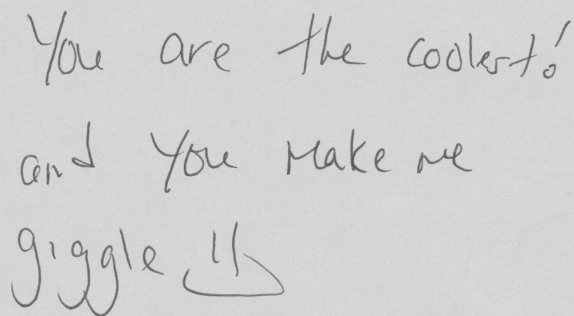 You are the coolest!
and you make me
giggle